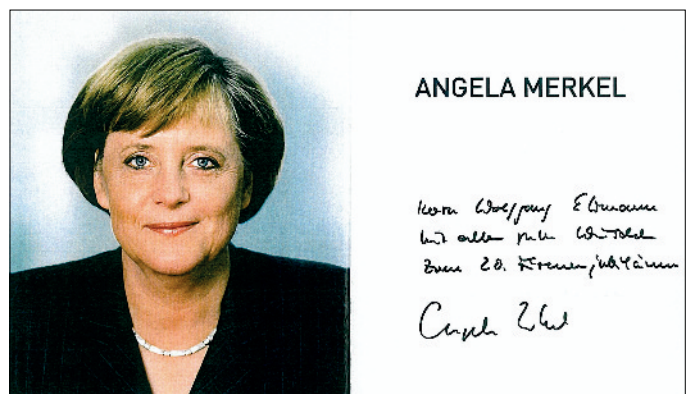 ANGELA MERKEL
Herrn Wolfgang
mit allen guten Wünschen
zum 20. Firmenjubiläum
Angela Merkel